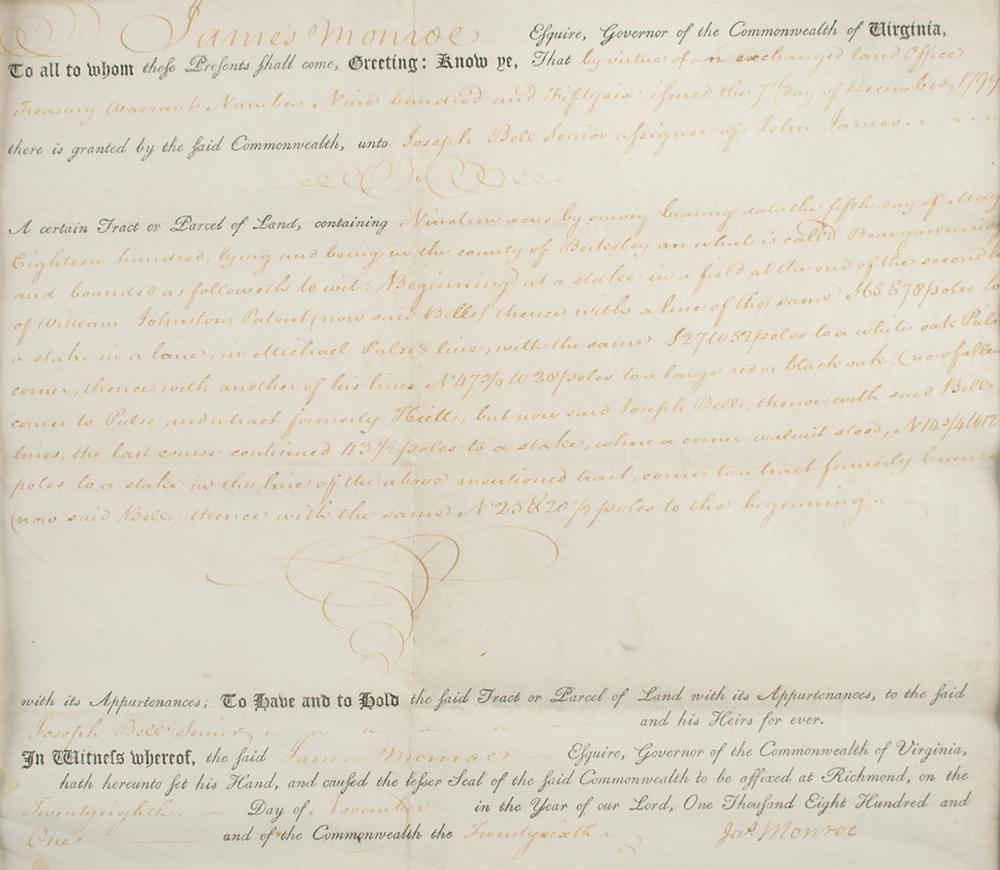 James Monroe Esquire, Governor of the Commonwealth of Virginia,
To all to whom these Presents shall come, Greeting: Know ye, That by virtue of an exchanged land Office
Treasury Warrant Number Nine hundred and Fiftysix, issued the 7th day of December 1799
there is granted by the said Commonwealth, unto Joseph Bell Senior assignee of John James.
A certain Tract or Parcel of Land, containing Nineteen acres by survey bearing date the fifth day of May
Eighteen hundred, lying and being in the county of Berkeley on what is called Beargarden
and bounded as followeth to wit: Beginning at a stake in a field at the end of the second
of William Johnstons Patent (now said Bells) thence with a line of the same S65E78 poles to
a stake in a lane, in Michael Pulse's line, with the same S27W52 poles to a white oak Pulse
corner, thence with another of his lines N47 3/4 W28 poles to a large red or black oak, (now fallen
corner to Pulse and a tract formerly Hietts, but now said Joseph Bells, thence with said Bells
lines, the last course continued 43 1/2 poles to a stake, where a corner walnut stood, N14 3/4 W12
poles to a stake in the line of the above mentioned tract, corner to a tract formerly
(now said Bell) thence with the same N25E20 1/2 poles to the beginning.
with its Appurtenances; To Have and to Hold the said Tract or Parcel of Land with its Appurtenances, to the said
Joseph Bell Senior and his Heirs for ever.
In Witness whereof, the said James Monroe Esquire, Governor of the Commonwealth of Virginia,
hath hereunto set his Hand, and caused the lesser Seal of the said Commonwealth to be affixed at Richmond, on the
Twentyeighth Day of November in the Year of our Lord, One Thousand Eight Hundred and
One and of the Commonwealth the Twentysixth. Jas Monroe